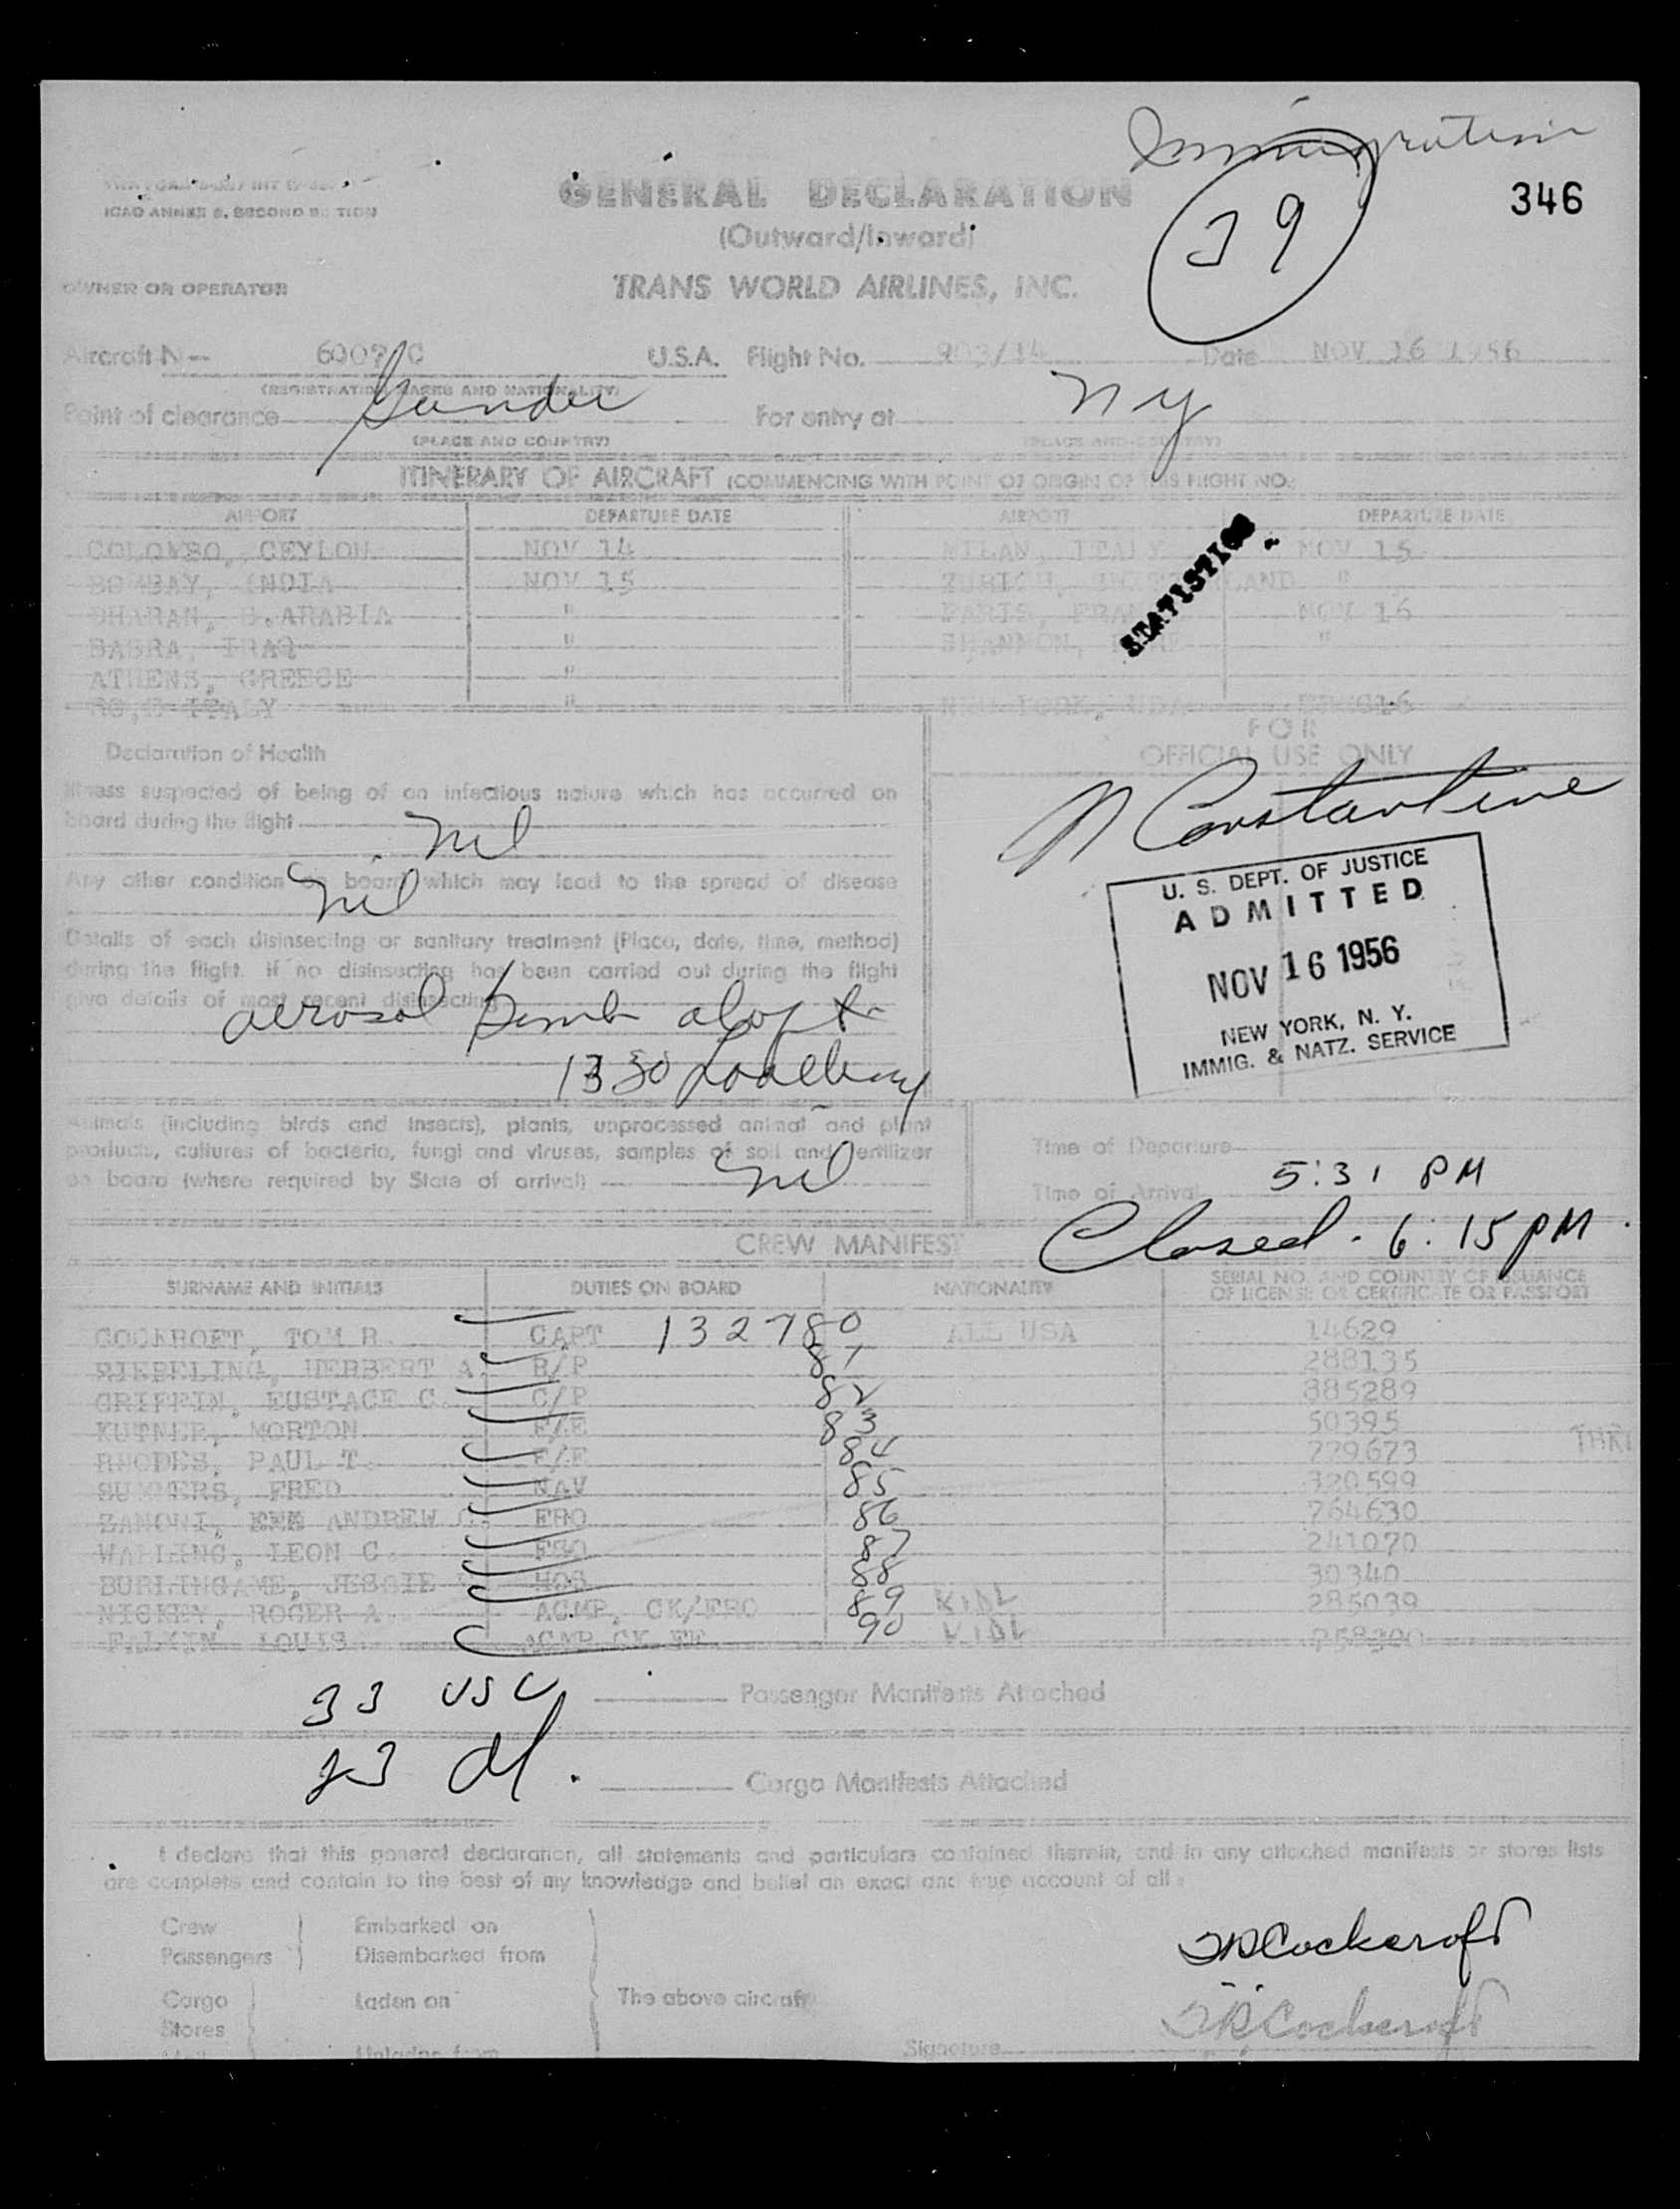 Immigration
39
346
ICAO ANNEX 9, SECOND EDITION
GENERAL DECLARATION
(Outward/Inward)
OWNER OR OPERATOR
TRANS WORLD AIRLINES, INC.
Aircraft N- C U.S.A. Flight No. Date NOV 16 1956
(REGISTRATION MARKS AND NATIONALITY)
Point of clearance Gander For entry at NY
(PLACE AND COUNTRY) (PLACE AND COUNTRY)
ITINERARY OF AIRCRAFT (COMMENCING WITH POINT OF ORIGIN OF THIS FLIGHT NO.)
AIRPORT DEPARTURE DATE AIRPORT DEPARTURE DATE
COLOMBO, CEYLON NOV 14 MILAN, ITALY NOV 15
BOMBAY, INDIA NOV 15 ZURICH, SWITZERLAND "
DHARAN, S.ARABIA " PARIS, FRANCE NOV 16
BASRA, IRAQ " SHANNON, "
ATHENS, GREECE "
ITALY " NEW YORK, USA
STATISTICS
FOR
OFFICIAL USE ONLY
Declaration of Health
Illness suspected of being of an infectious nature which has occurred on
board during the flight nil
Any other condition on board which may lead to the spread of disease
nil
Details of each disinsecting or sanitary treatment (Place, date, time, method)
during the flight. If no disinsecting has been carried out during the flight
give details of most recent disinsecting
aerosol bomb
1330
N Constantine
U. S. DEPT. OF JUSTICE
ADMITTED
NOV 16 1956
NEW YORK, N. Y.
IMMIG. & NATZ. SERVICE
Animals (including birds and insects), plants, unprocessed animal and plant
products, cultures of bacteria, fungi and viruses, samples of soil and fertilizer
on board (where required by State of arrival) nil
Time of Departure
Time of Arrival 5:31 PM
Closed - 6:15 PM.
CREW MANIFEST
SURNAME AND INITIALS DUTIES ON BOARD NATIONALITY SERIAL NO. AND COUNTRY OF ISSUANCE
OF LICENSE OR CERTIFICATE OR PASSPORT
COCKROFT, TOM R. CAPT 132780 ALL USA 14629
RIEBELING, HERBERT A. R/P 81 288135
GRIFFIN, EUSTACE C. C/P 82 885289
KUTNER, MORTON F/E 83 50395
RHODES, PAUL T. F/E 84 229673
SUMMERS, FRED NAV 85 320599
ZANONI, ANDREW C. FRO 86 764630
LEON C. 87 241070
BURLINGAME, JESSIE HOS 88 30340
ROGER A. ACMP, CK/FRO 89 KIDL 285039
LOUIS 90 KIDL
33 USC
Passenger Manifests Attached
23 Al.
Cargo Manifests Attached
I declare that this general declaration, all statements and particulars contained therein, and in any attached manifests or stores lists
are complete and contain to the best of my knowledge and belief an exact and true account of all:
Crew Embarked on
Passengers Disembarked from
Cargo Laden on The above aircraft
Stores
TR Cockcroft
TR Cockcroft
Signature